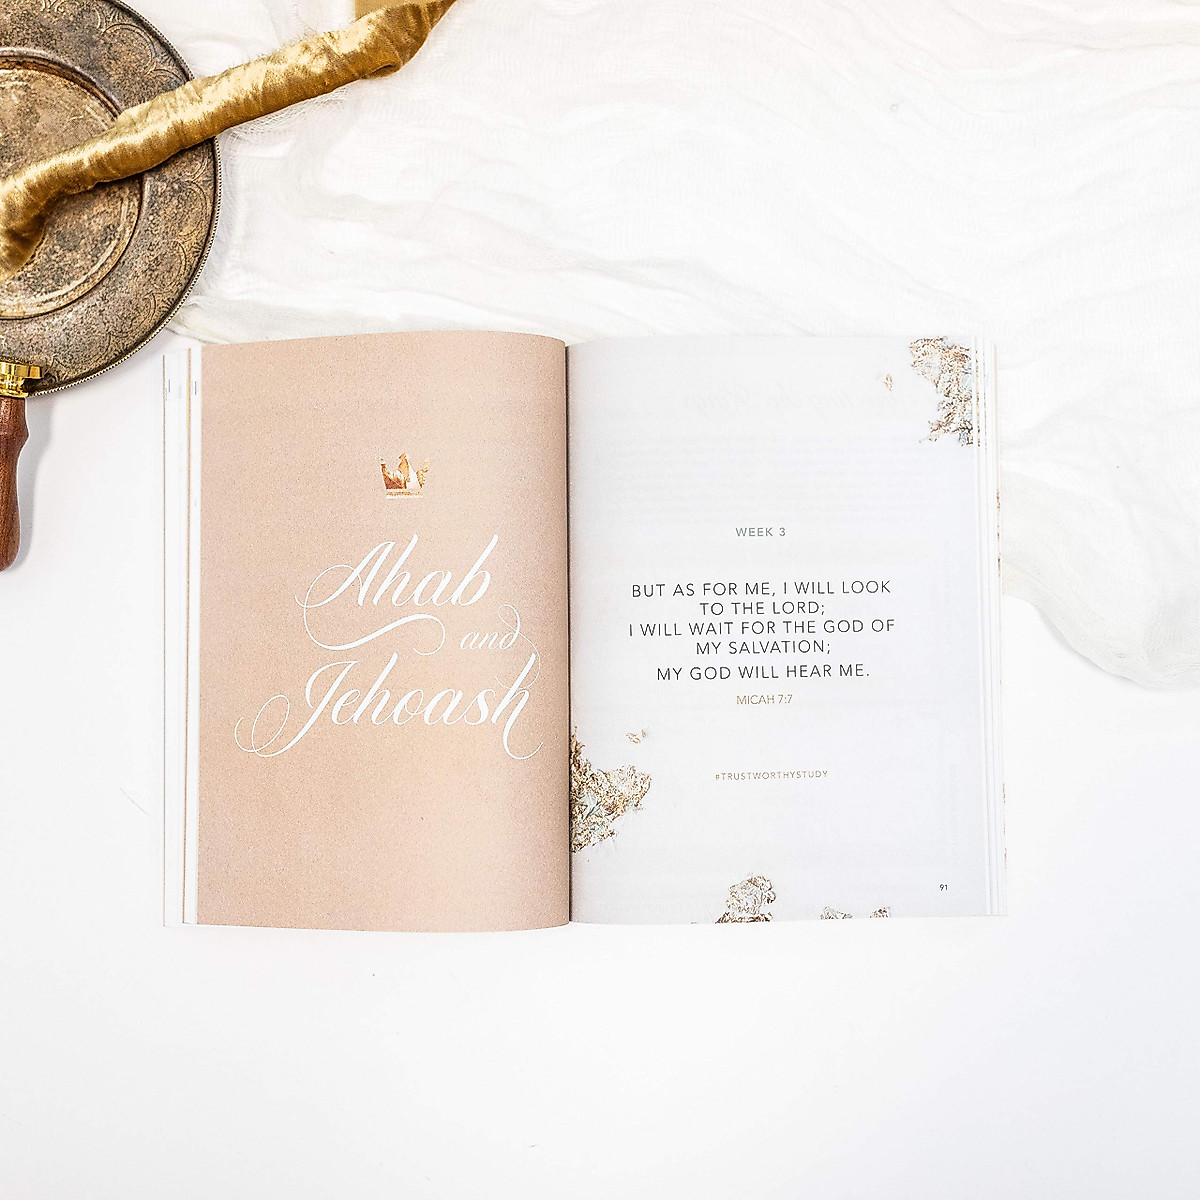 Ahab
and
Jehoash
WEEK 3
BUT AS FOR ME, I WILL LOOK
TO THE LORD;
I WILL WAIT FOR THE GOD OF
MY SALVATION;
MY GOD WILL HEAR ME.
MICAH 7:7
#TRUSTWORTHYSTUDY
91